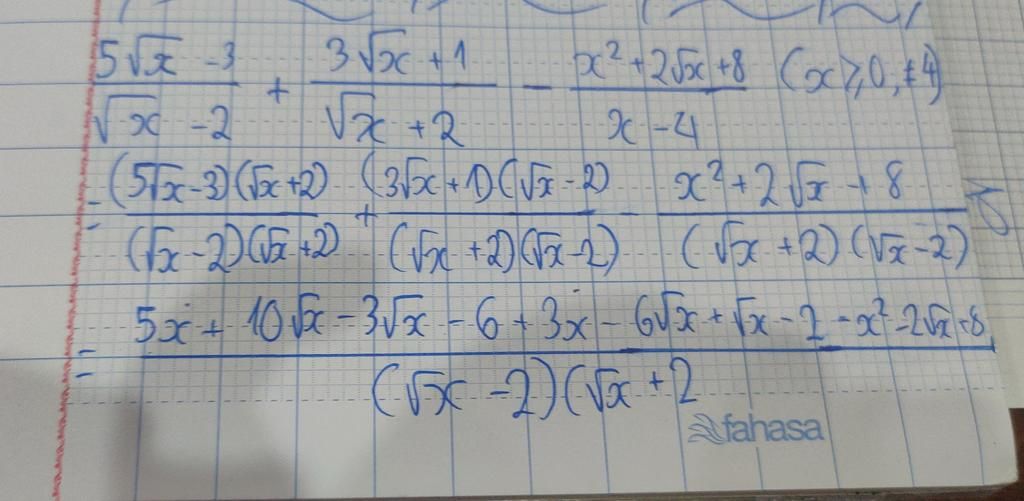 (5√x - 3)/(√x - 2) + (3√x + 1)/(√x + 2) - (x² + 2√x + 8)/(x - 4) (x ≥ 0, ≠ 4)
= (5√x - 3)(√x + 2)/(√x - 2)(√x + 2) + (3√x + 1)(√x - 2)/(√x + 2)(√x - 2) - (x² + 2√x + 8)/(√x + 2)(√x - 2)
= (5x + 10√x - 3√x - 6 + 3x - 6√x + √x - 2 - x² - 2√x - 8)/(√x - 2)(√x + 2
fahasa